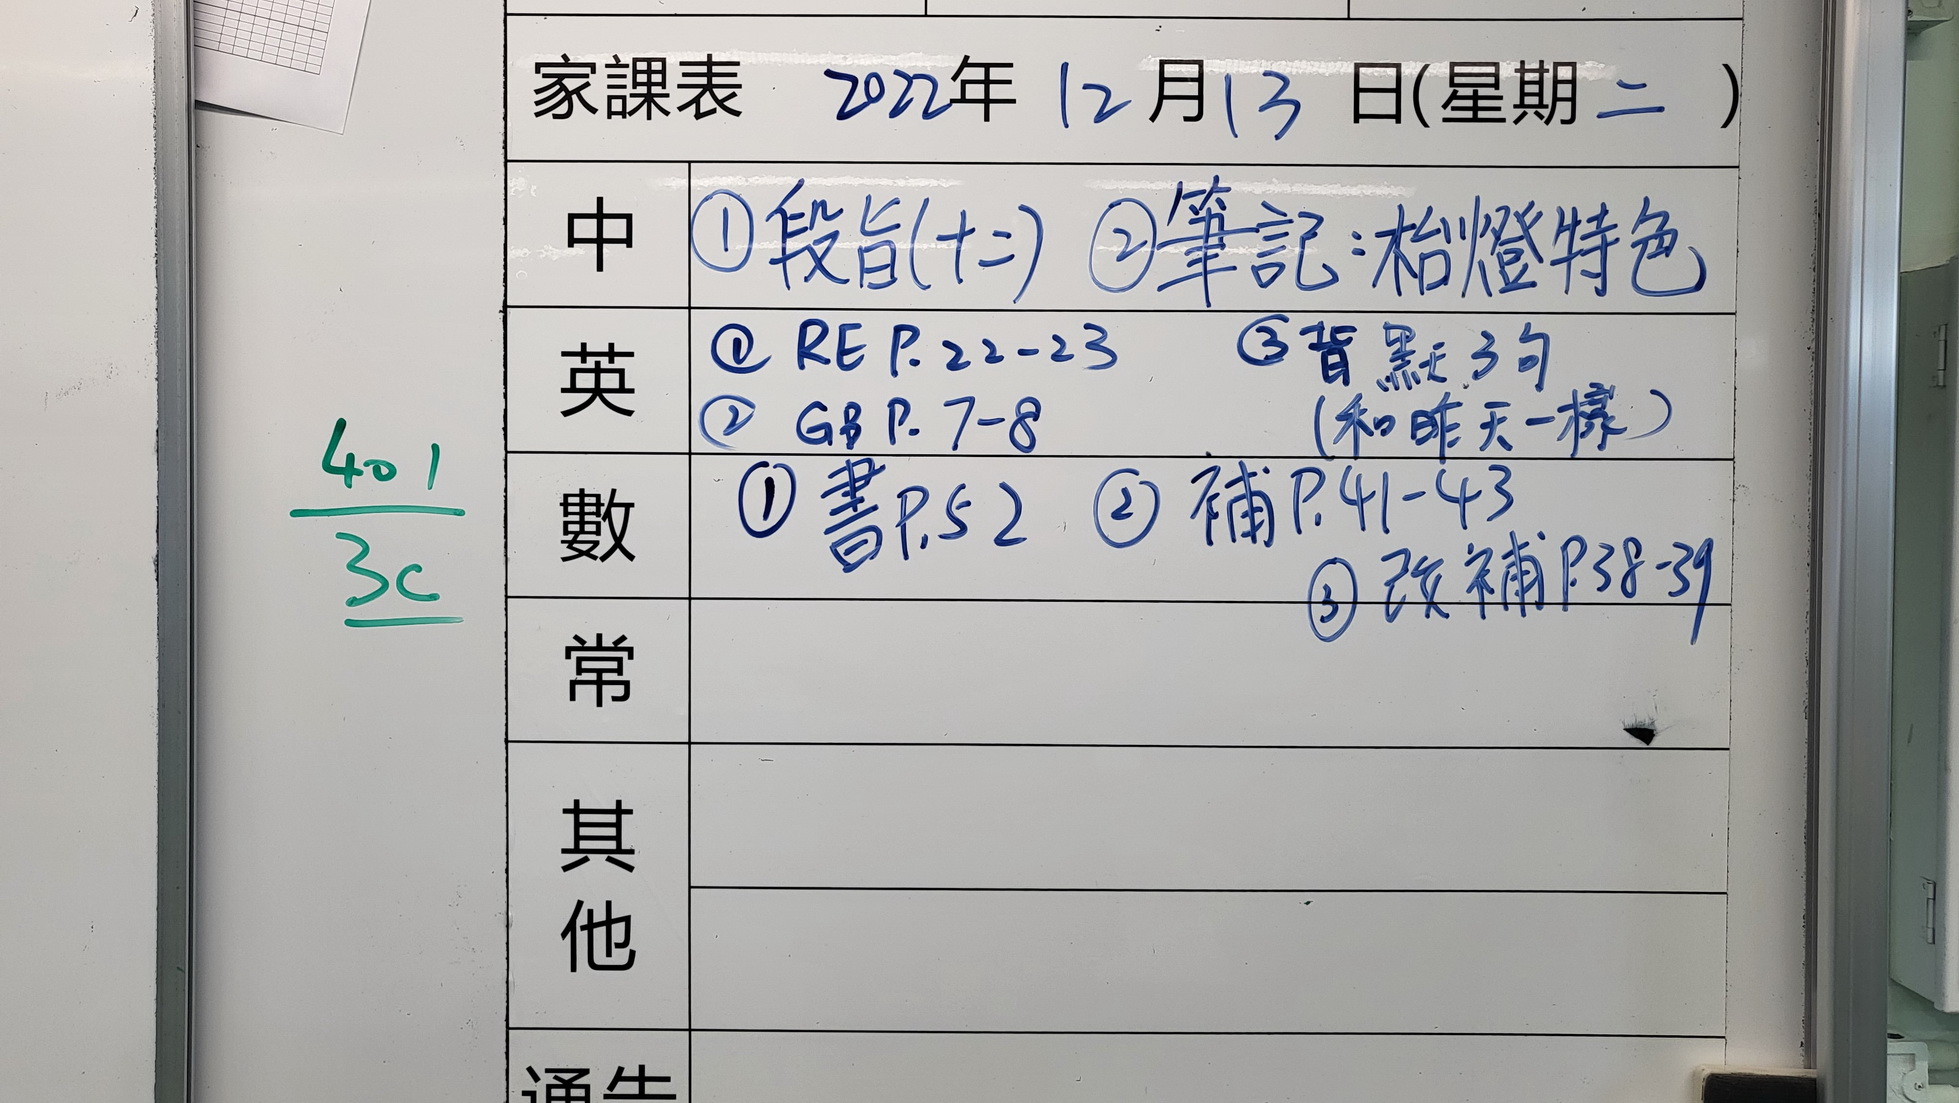 家課表 2022年 12月13日(星期二)
中 ①段旨(十二) ②筆記:枱燈特色
英 ① RE P.22-23 ③背默3句
② GB P.7-8 (和昨天一樣)
數 ①書P.52 ②補P.41-43
③改補P.38-39
常
其他
通告
401
3C